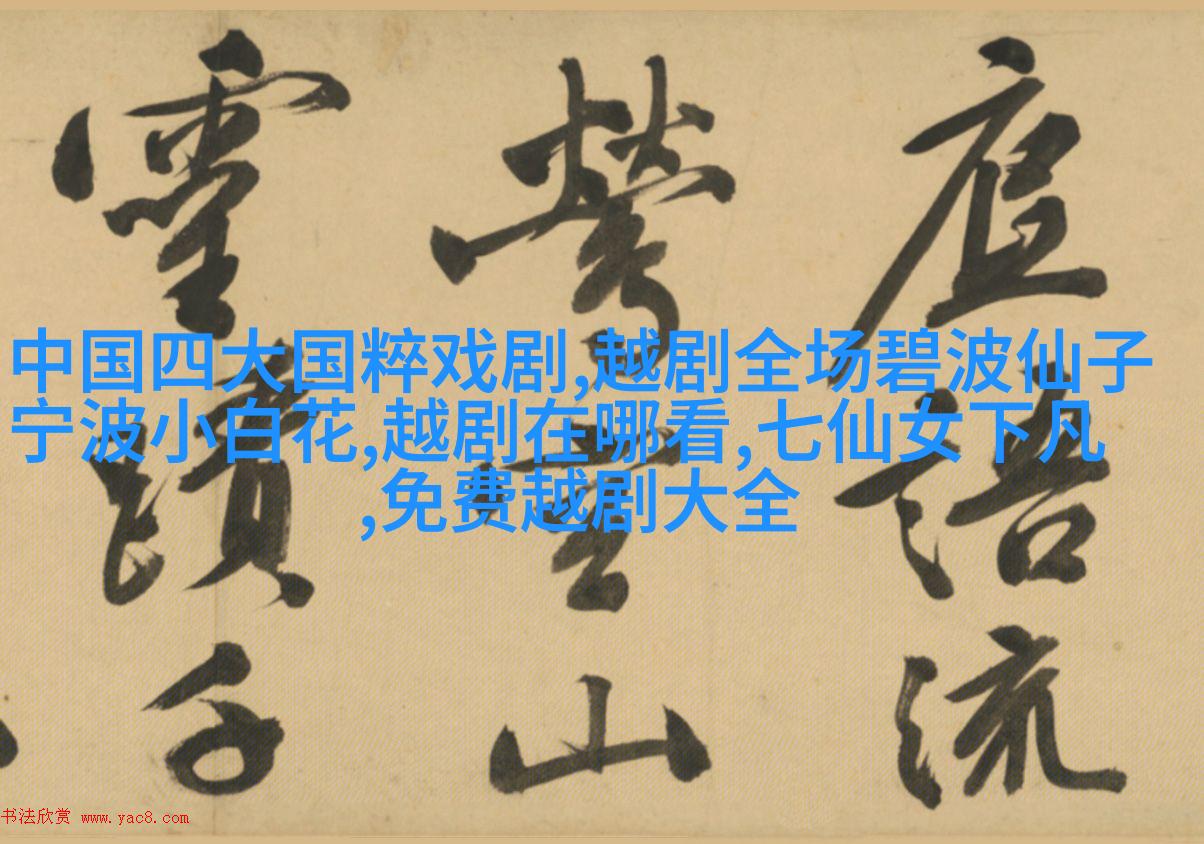 中国四大国粹戏剧,越剧全场碧波仙子
宁波小白花,越剧在哪看,七仙女下凡
,免费越剧大全
語流
山
靈蹟千
书法欣赏 www.yac8.com